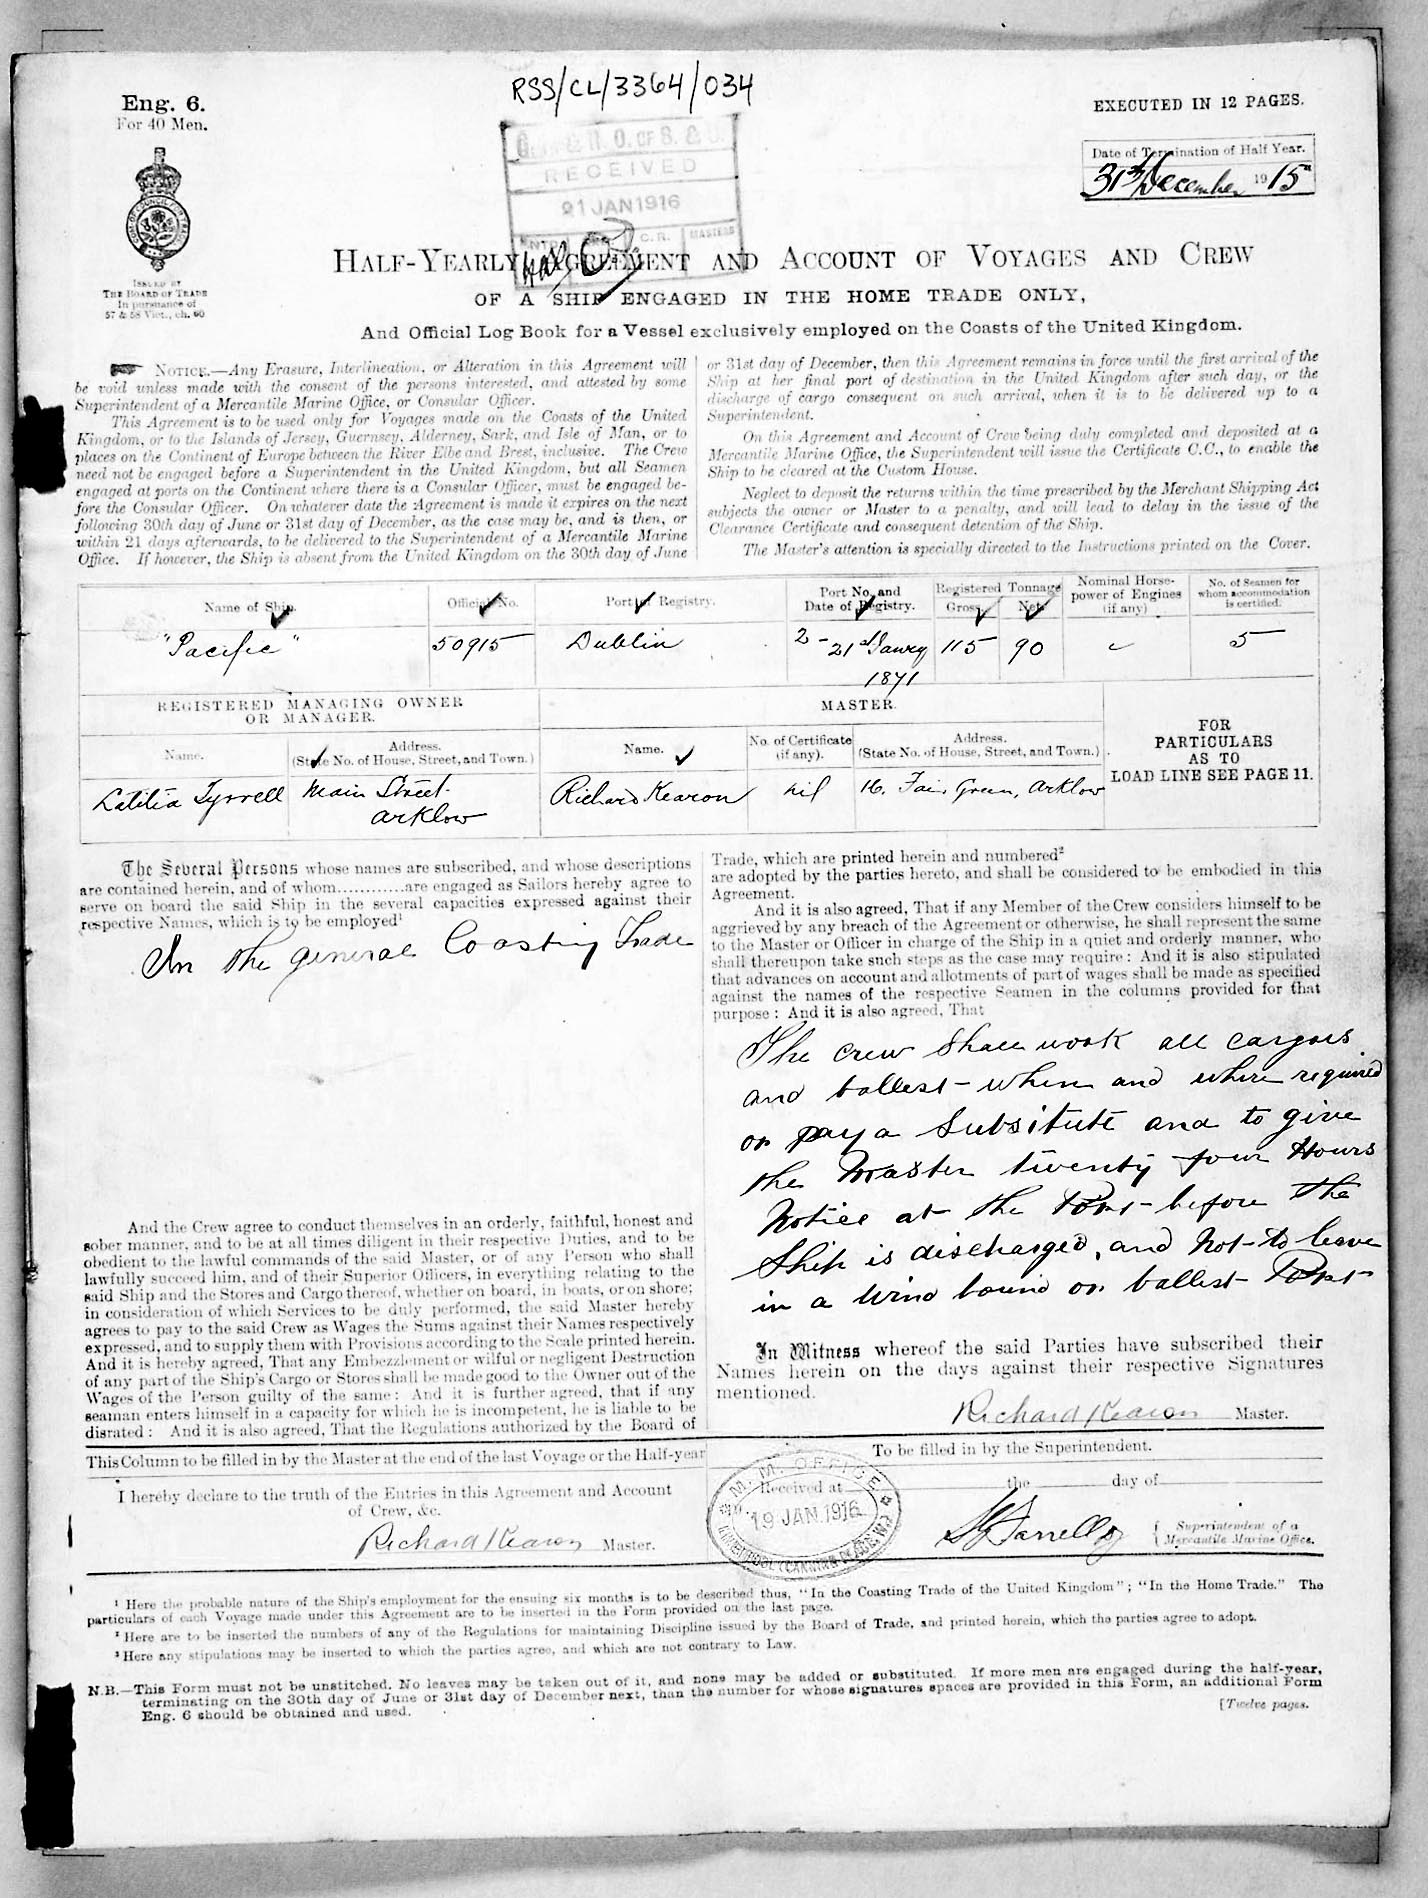 RSS/CL/3364/034
Eng. 6.
For 40 Men.
EXECUTED IN 12 PAGES.
Date of Termination of Half Year.
31st December 1915
ISSUED BY
THE BOARD OF TRADE
In pursuance of
57 & 58 Vict., ch. 60
R. O. OF S. & S.
RECEIVED
21 JAN 1916
C.R. MASTERS
HALF-YEARLY AGREEMENT AND ACCOUNT OF VOYAGES AND CREW
OF A SHIP ENGAGED IN THE HOME TRADE ONLY,
And Official Log Book for a Vessel exclusively employed on the Coasts of the United Kingdom.
NOTICE.—Any Erasure, Interlineation, or Alteration in this Agreement will
be void unless made with the consent of the persons interested, and attested by some
Superintendent of a Mercantile Marine Office, or Consular Officer.
This Agreement is to be used only for Voyages made on the Coasts of the United
Kingdom, or to the Islands of Jersey, Guernsey, Alderney, Sark, and Isle of Man, or to
places on the Continent of Europe between the River Elbe and Brest, inclusive. The Crew
need not be engaged before a Superintendent in the United Kingdom, but all Seamen
engaged at ports on the Continent where there is a Consular Officer, must be engaged be-
fore the Consular Officer. On whatever date the Agreement is made it expires on the next
following 30th day of June or 31st day of December, as the case may be, and is then, or
within 21 days afterwards, to be delivered to the Superintendent of a Mercantile Marine
Office. If however, the Ship is absent from the United Kingdom on the 30th day of June
or 31st day of December, then this Agreement remains in force until the first arrival of the
Ship at her final port of destination in the United Kingdom after such day, or the
discharge of cargo consequent on such arrival, when it is to be delivered up to a
Superintendent.
On this Agreement and Account of Crew being duly completed and deposited at a
Mercantile Marine Office, the Superintendent will issue the Certificate C.C., to enable the
Ship to be cleared at the Custom House.
Neglect to deposit the returns within the time prescribed by the Merchant Shipping Act
subjects the owner or Master to a penalty, and will lead to delay in the issue of the
Clearance Certificate and consequent detention of the Ship.
The Master's attention is specially directed to the Instructions printed on the Cover.
Name of Ship.
Official No.
Port of Registry.
Port No. and
Date of Registry.
Registered Tonnage
Gross. Nett.
Nominal Horse-
power of Engines
(if any)
No. of Seamen for
whom accommodation
is certified.
"Pacific" 50915 Dublin 2 - 21st Janry 115 90 5
1871
REGISTERED MANAGING OWNER
OR MANAGER.
MASTER.
FOR
PARTICULARS
AS TO
LOAD LINE SEE PAGE 11.
Name.
Address.
(State No. of House, Street, and Town.)
Name.
No. of Certificate
(if any).
Address.
(State No. of House, Street, and Town.)
Latitia Tyrrell Main Street Richard Kearon nil 16, Fair Green, Arklow
Arklow
The Several Persons whose names are subscribed, and whose descriptions
are contained herein, and of whom............are engaged as Sailors hereby agree to
serve on board the said Ship in the several capacities expressed against their
respective Names, which is to be employed¹
In the general Coasting Trade
And the Crew agree to conduct themselves in an orderly, faithful, honest and
sober manner, and to be at all times diligent in their respective Duties, and to be
obedient to the lawful commands of the said Master, or of any Person who shall
lawfully succeed him, and of their Superior Officers, in everything relating to the
said Ship and the Stores and Cargo thereof, whether on board, in boats, or on shore;
in consideration of which Services to be duly performed, the said Master hereby
agrees to pay to the said Crew as Wages the Sums against their Names respectively
expressed, and to supply them with Provisions according to the Scale printed herein.
And it is hereby agreed, That any Embezzlement or wilful or negligent Destruction
of any part of the Ship's Cargo or Stores shall be made good to the Owner out of the
Wages of the Person guilty of the same: And it is further agreed, that if any
seaman enters himself in a capacity for which he is incompetent, he is liable to be
disrated: And it is also agreed, That the Regulations authorized by the Board of
Trade, which are printed herein and numbered²
are adopted by the parties hereto, and shall be considered to be embodied in this
Agreement.
And it is also agreed, That if any Member of the Crew considers himself to be
aggrieved by any breach of the Agreement or otherwise, he shall represent the same
to the Master or Officer in charge of the Ship in a quiet and orderly manner, who
shall thereupon take such steps as the case may require: And it is also stipulated
that advances on account and allotments of part of wages shall be made as specified
against the names of the respective Seamen in the columns provided for that
purpose: And it is also agreed, That
The crew shall work all cargoes
and ballest when and where required
or pay a Subsitute and to give
the Master twenty four Hours
Notice at the Port before the
Ship is discharged, and Not to leave
in a wind bound or ballest Port
In Witness whereof the said Parties have subscribed their
Names herein on the days against their respective Signatures
mentioned.
Richard Kearon Master.
This Column to be filled in by the Master at the end of the last Voyage or the Half-year
I hereby declare to the truth of the Entries in this Agreement and Account
of Crew, &c.
Richard Kearon Master.
To be filled in by the Superintendent.
M. M. OFFICE
Received at the day of
19 JAN. 1916
LIVERPOOL (CANNING PLACE, W.)
Farrell Superintendent of a
Mercantile Marine Office.
¹ Here the probable nature of the Ship's employment for the ensuing six months is to be described thus, "In the Coasting Trade of the United Kingdom"; "In the Home Trade." The
particulars of each Voyage made under this Agreement are to be inserted in the Form provided on the last page.
² Here are to be inserted the numbers of any of the Regulations for maintaining Discipline issued by the Board of Trade, and printed herein, which the parties agree to adopt.
³ Here any stipulations may be inserted to which the parties agree, and which are not contrary to Law.
N.B.—This Form must not be unstitched. No leaves may be taken out of it, and none may be added or substituted. If more men are engaged during the half-year,
terminating on the 30th day of June or 31st day of December next, than the number for whose signatures spaces are provided in this Form, an additional Form
Eng. 6 should be obtained and used.
[Twelve pages.